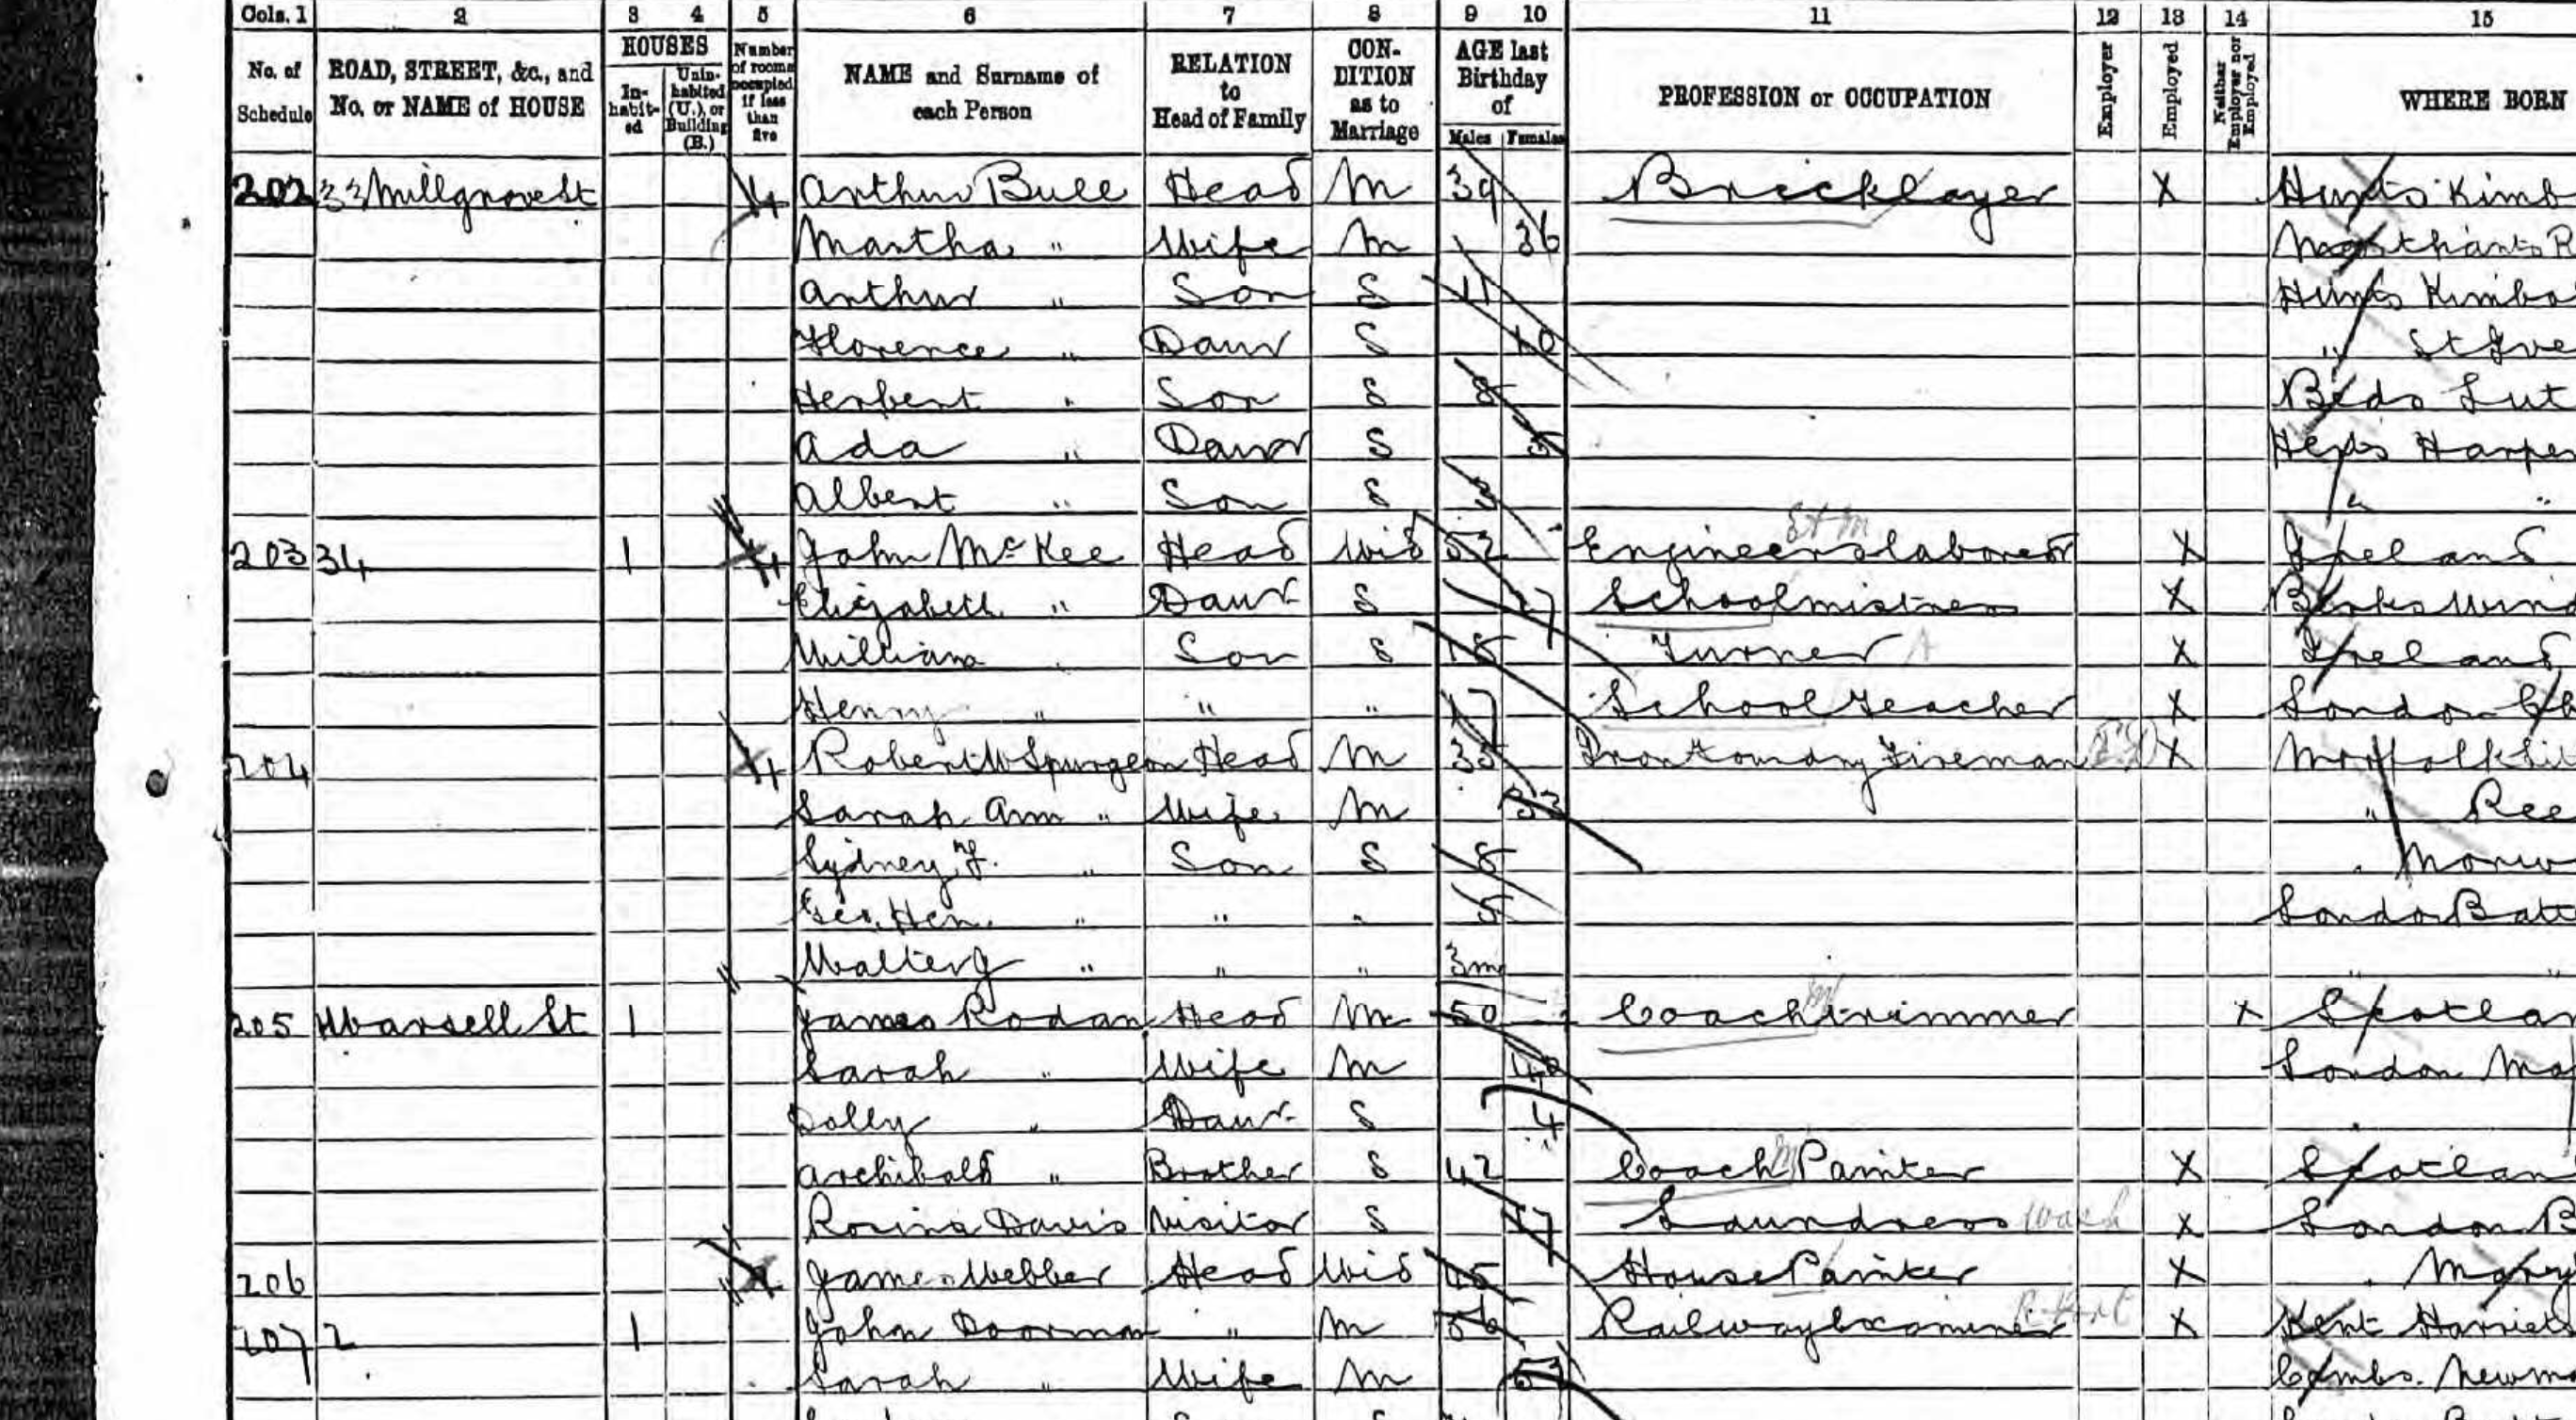 Cols. 1 2 3 4 5 6 7 8 9 10 11 12 13 14 15
No. of Schedule ROAD, STREET, &c., and No. or NAME of HOUSE HOUSES In-habit-ed Unin-habited (U.), or Building (B.) Number of rooms occupied if less than five NAME and Surname of each Person RELATION to Head of Family CON-DITION as to Marriage AGE last Birthday of Males Females PROFESSION or OCCUPATION Employer Employed Neither Employer nor Employed WHERE BORN
202 33 Millgrove St 4 Arthur Bull Head M 39 Bricklayer X Hunts Kimb
Martha " Wife M 36 Northants R
Arthur " Son S 11 Hunts Kimbo
Florence " Daur S 10 " St Ive
Herbert " Son S 8 Beds Lut
Ada " Daur S 5 Herts Harpen
Albert " Son S 3 " "
203 34 1 4 John McKee Head Wid 52 Engineers laborer X Ireland
Elizabeth " Daur S 27 Schoolmistress X Berks Wind
William " Son S 18 Turner X Ireland
Henry " " " 17 School Teacher X London
204 4 Robert W Spurgeon Head M 35 Iron Foundry Fireman X Norfolk
Sarah Ann " Wife M 33 " Ree
Sydney F. " Son S 8 " Norw
Geo. Hen. " " " 5 London Batt
Walter G " " " 3m " "
205 Warsell St 1 James Rodan Head M 50 Coach trimmer X Scotlan
Sarah " Wife M London Ma
Dolly " Daur S 4 "
Archibald " Brother S 42 Coach Painter X Scotlan
Rosina Davis Visitor S 17 Laundress wash X London B
206 James Webber Head Wid 45 House Painter X " Mary
207 2 1 John Doorman " M 56 Railway Examiner X Kent Harriets
Sarah " Wife M Cambs. Newm